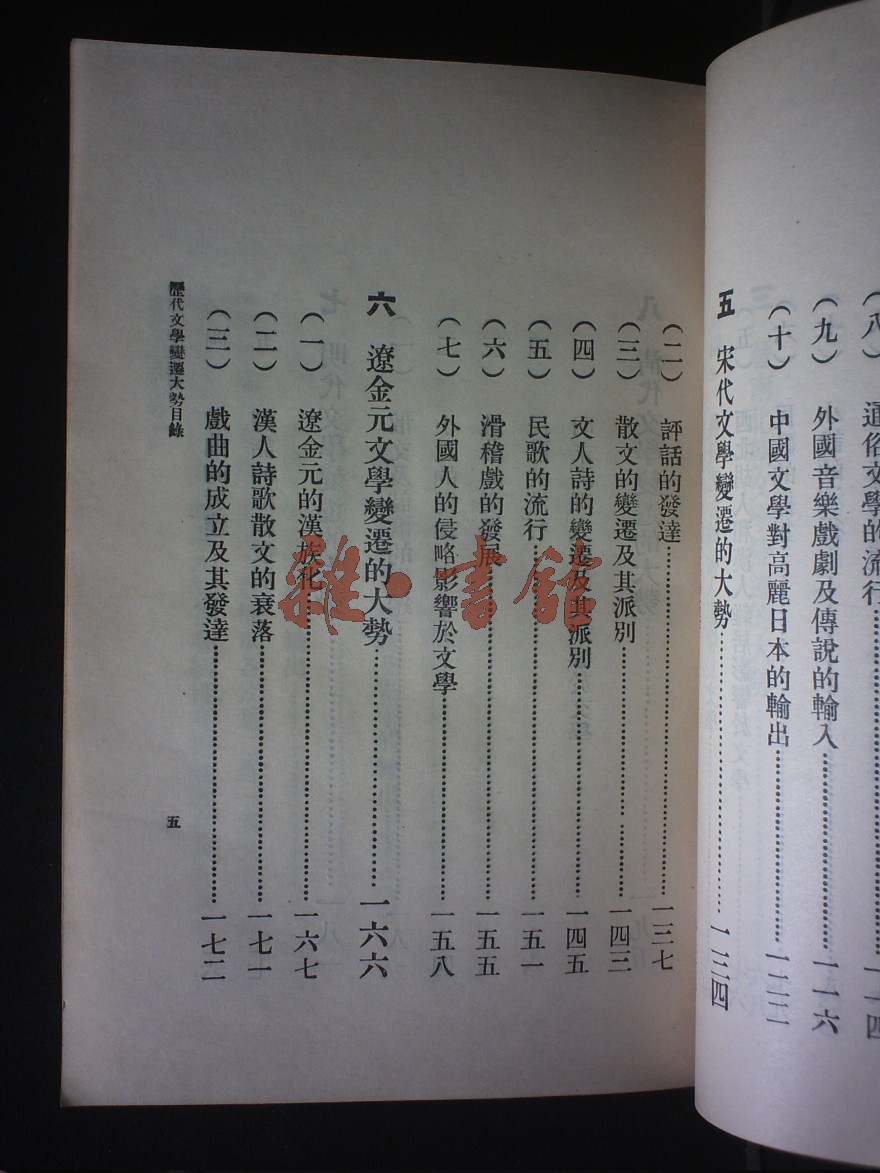 （八） 通俗文學的流行……………一一四
（九） 外國音樂戲劇及傳說的輸入……………一一六
（十） 中國文學對高麗日本的輸出……………一二二
五 宋代文學變遷的大勢……………一三四
（二） 評話的發達……………一三七
（三） 散文的變遷及其派別……………一四三
（四） 文人詩的變遷及其派別……………一四五
（五） 民歌的流行……………一五一
（六） 滑稽戲的發展……………一五五
（七） 外國人的侵略影響於文學……………一五八
六 遼金元文學變遷的大勢……………一六六
（一） 遼金元的漢族化……………一六七
（二） 漢人詩歌散文的衰落……………一七一
（三） 戲曲的成立及其發達……………一七二
歷代文學變遷大勢目錄
五
雜·書館